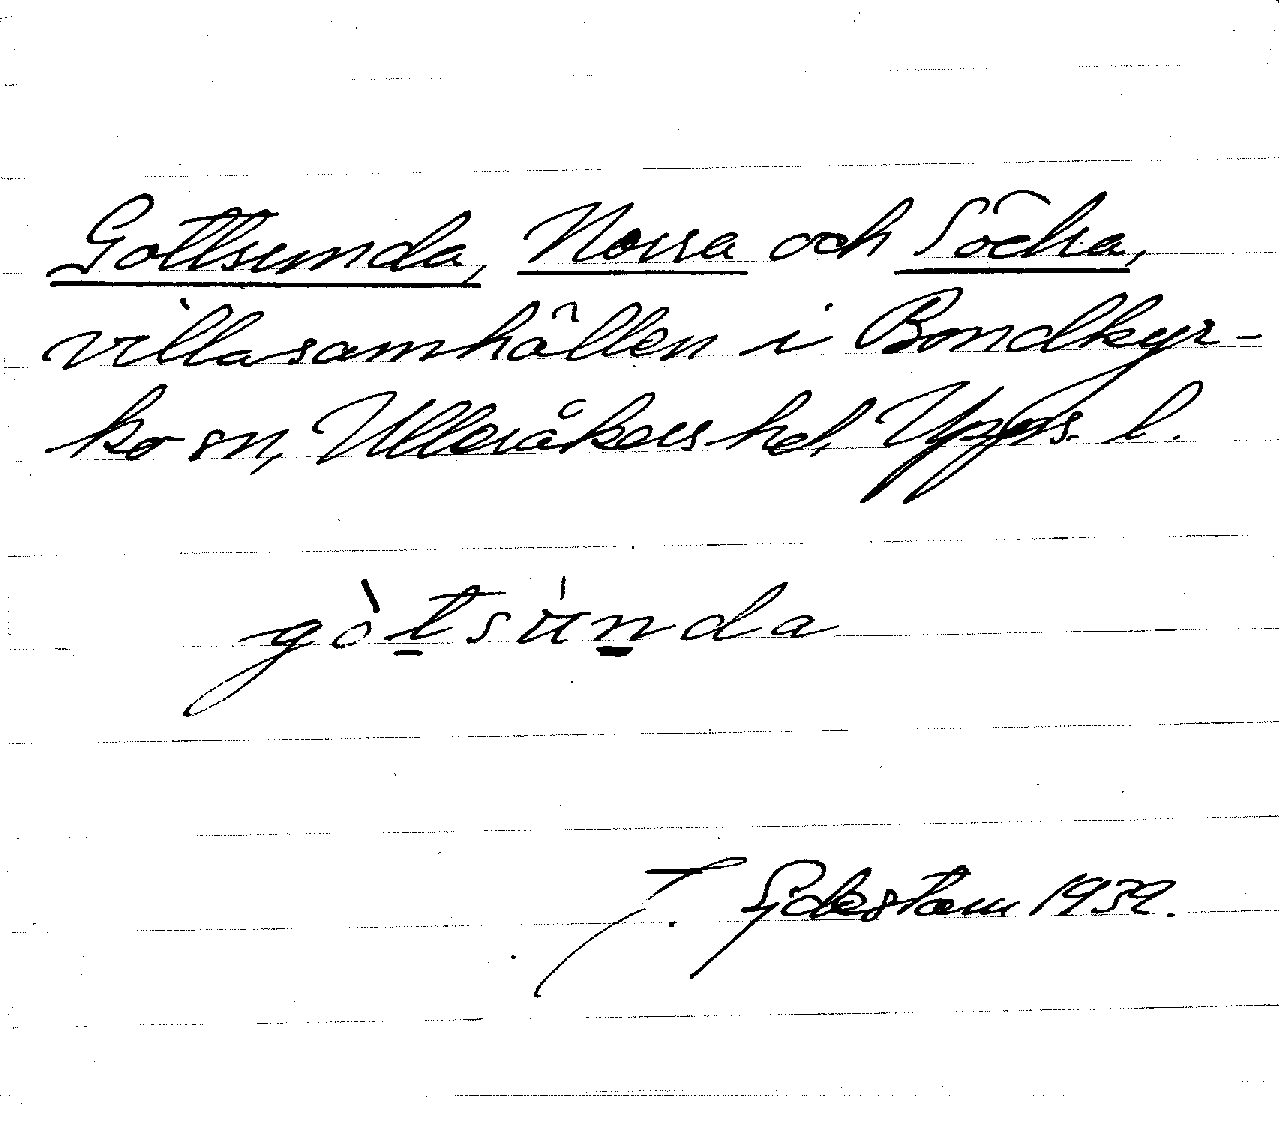 Gottsunda, Norra och Södra,
villasamhällen i Bondkyr-
ko sn, Ulleråkers hd Upps. l.
gòtsúnda
J. Sjdestam 1932.